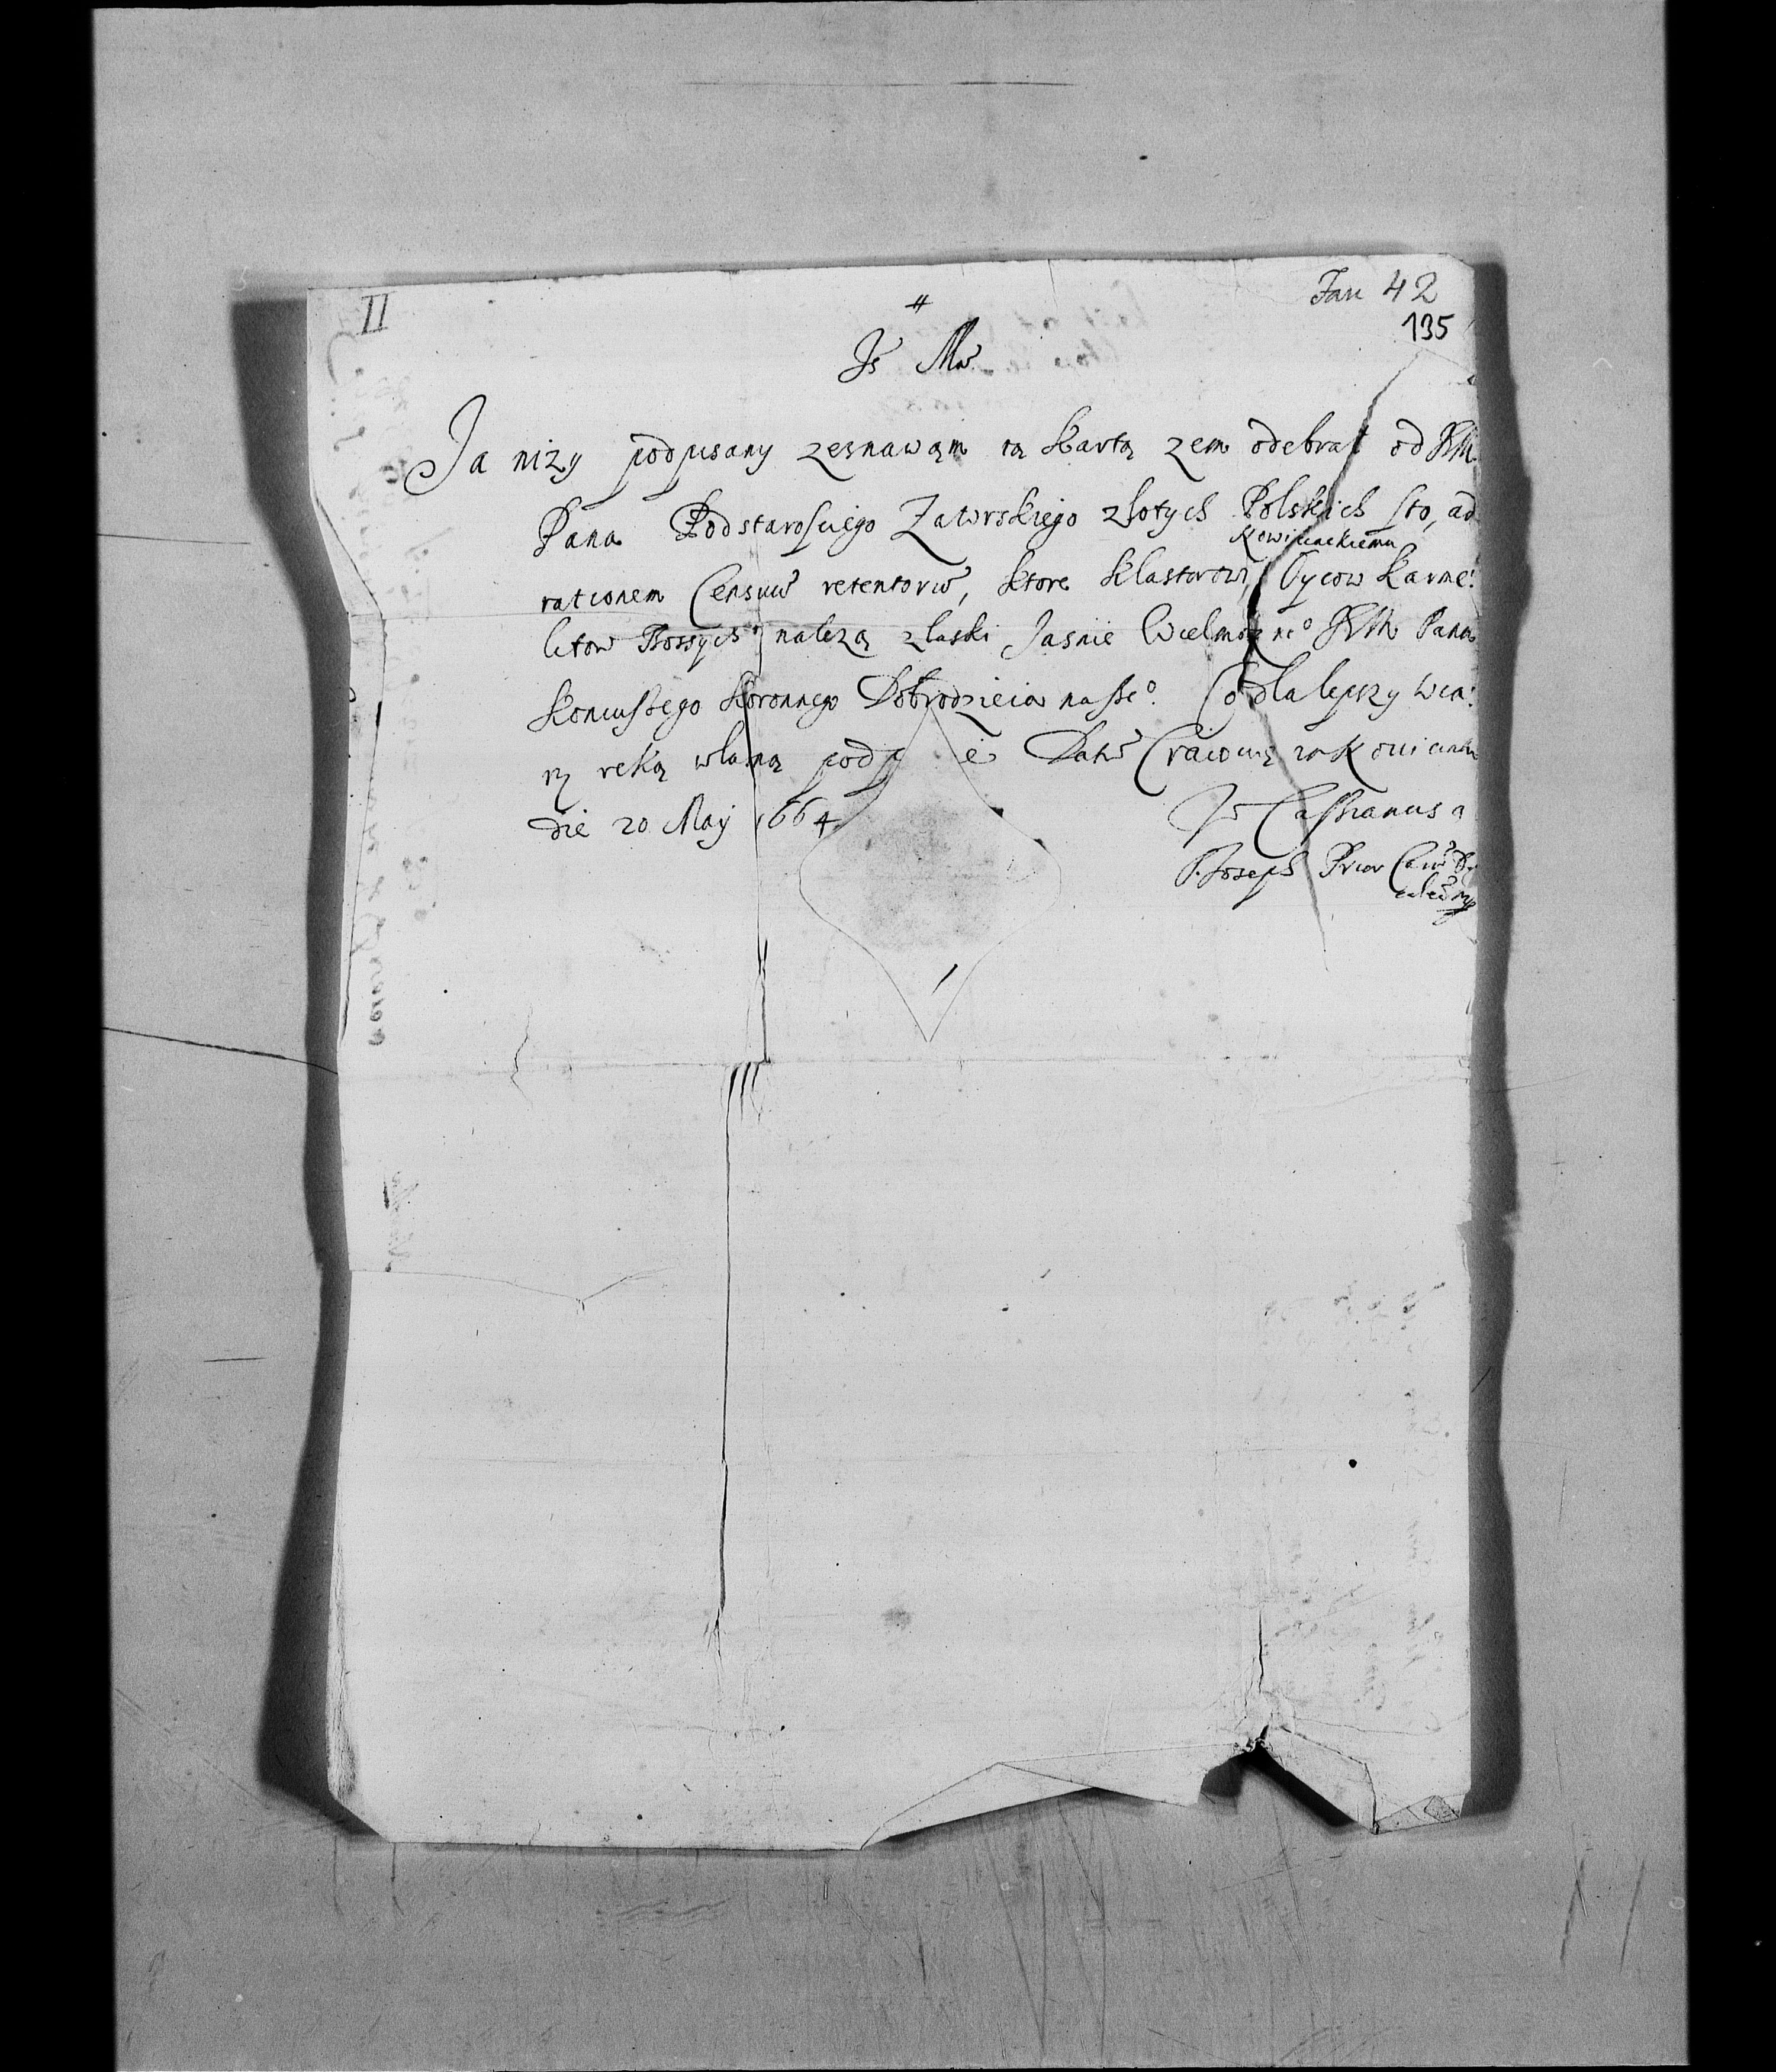 II
Jan 42
135
Js Ma
Ja niży podpisany zesnawąm tą kartą zem odebrał od JM
Pana Podstarosciego Zatorskiego złotych Polskich sto, ad
Wiśnickiemu
rationem Censuu retentoru, ktore Klastorowi Oycow Karme:
litow Bossych nalezą z łaski Jasnie Wielmożne⁰ JM Pana
Koniuszego Koronnego Dobrodzieia nasze⁰. Co dla lepszy wia:
ry ręką własną podp e Dat
die 20 Maij 1664
Cassianus a
S. Joseph Prior